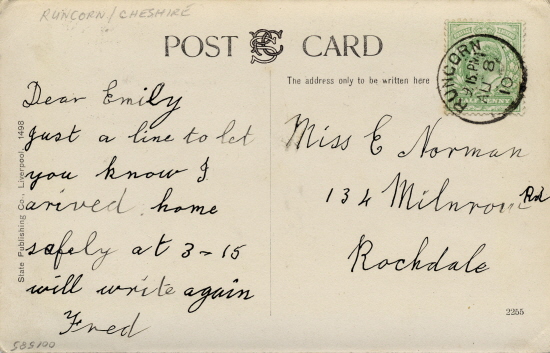 RUNCORN / CHESHIRE
POST CARD
The address only to be written here
RUNCORN
9.15 PM
AU 8
10
HALFPENNY
Dear Emily
Just a line to let
you know I
arived home
safely at 3-15
will write again
Fred
Miss E Norman
134 Milnrow Rd
Rockdale
State Publishing Co., Liverpool. 1498
2255
585190